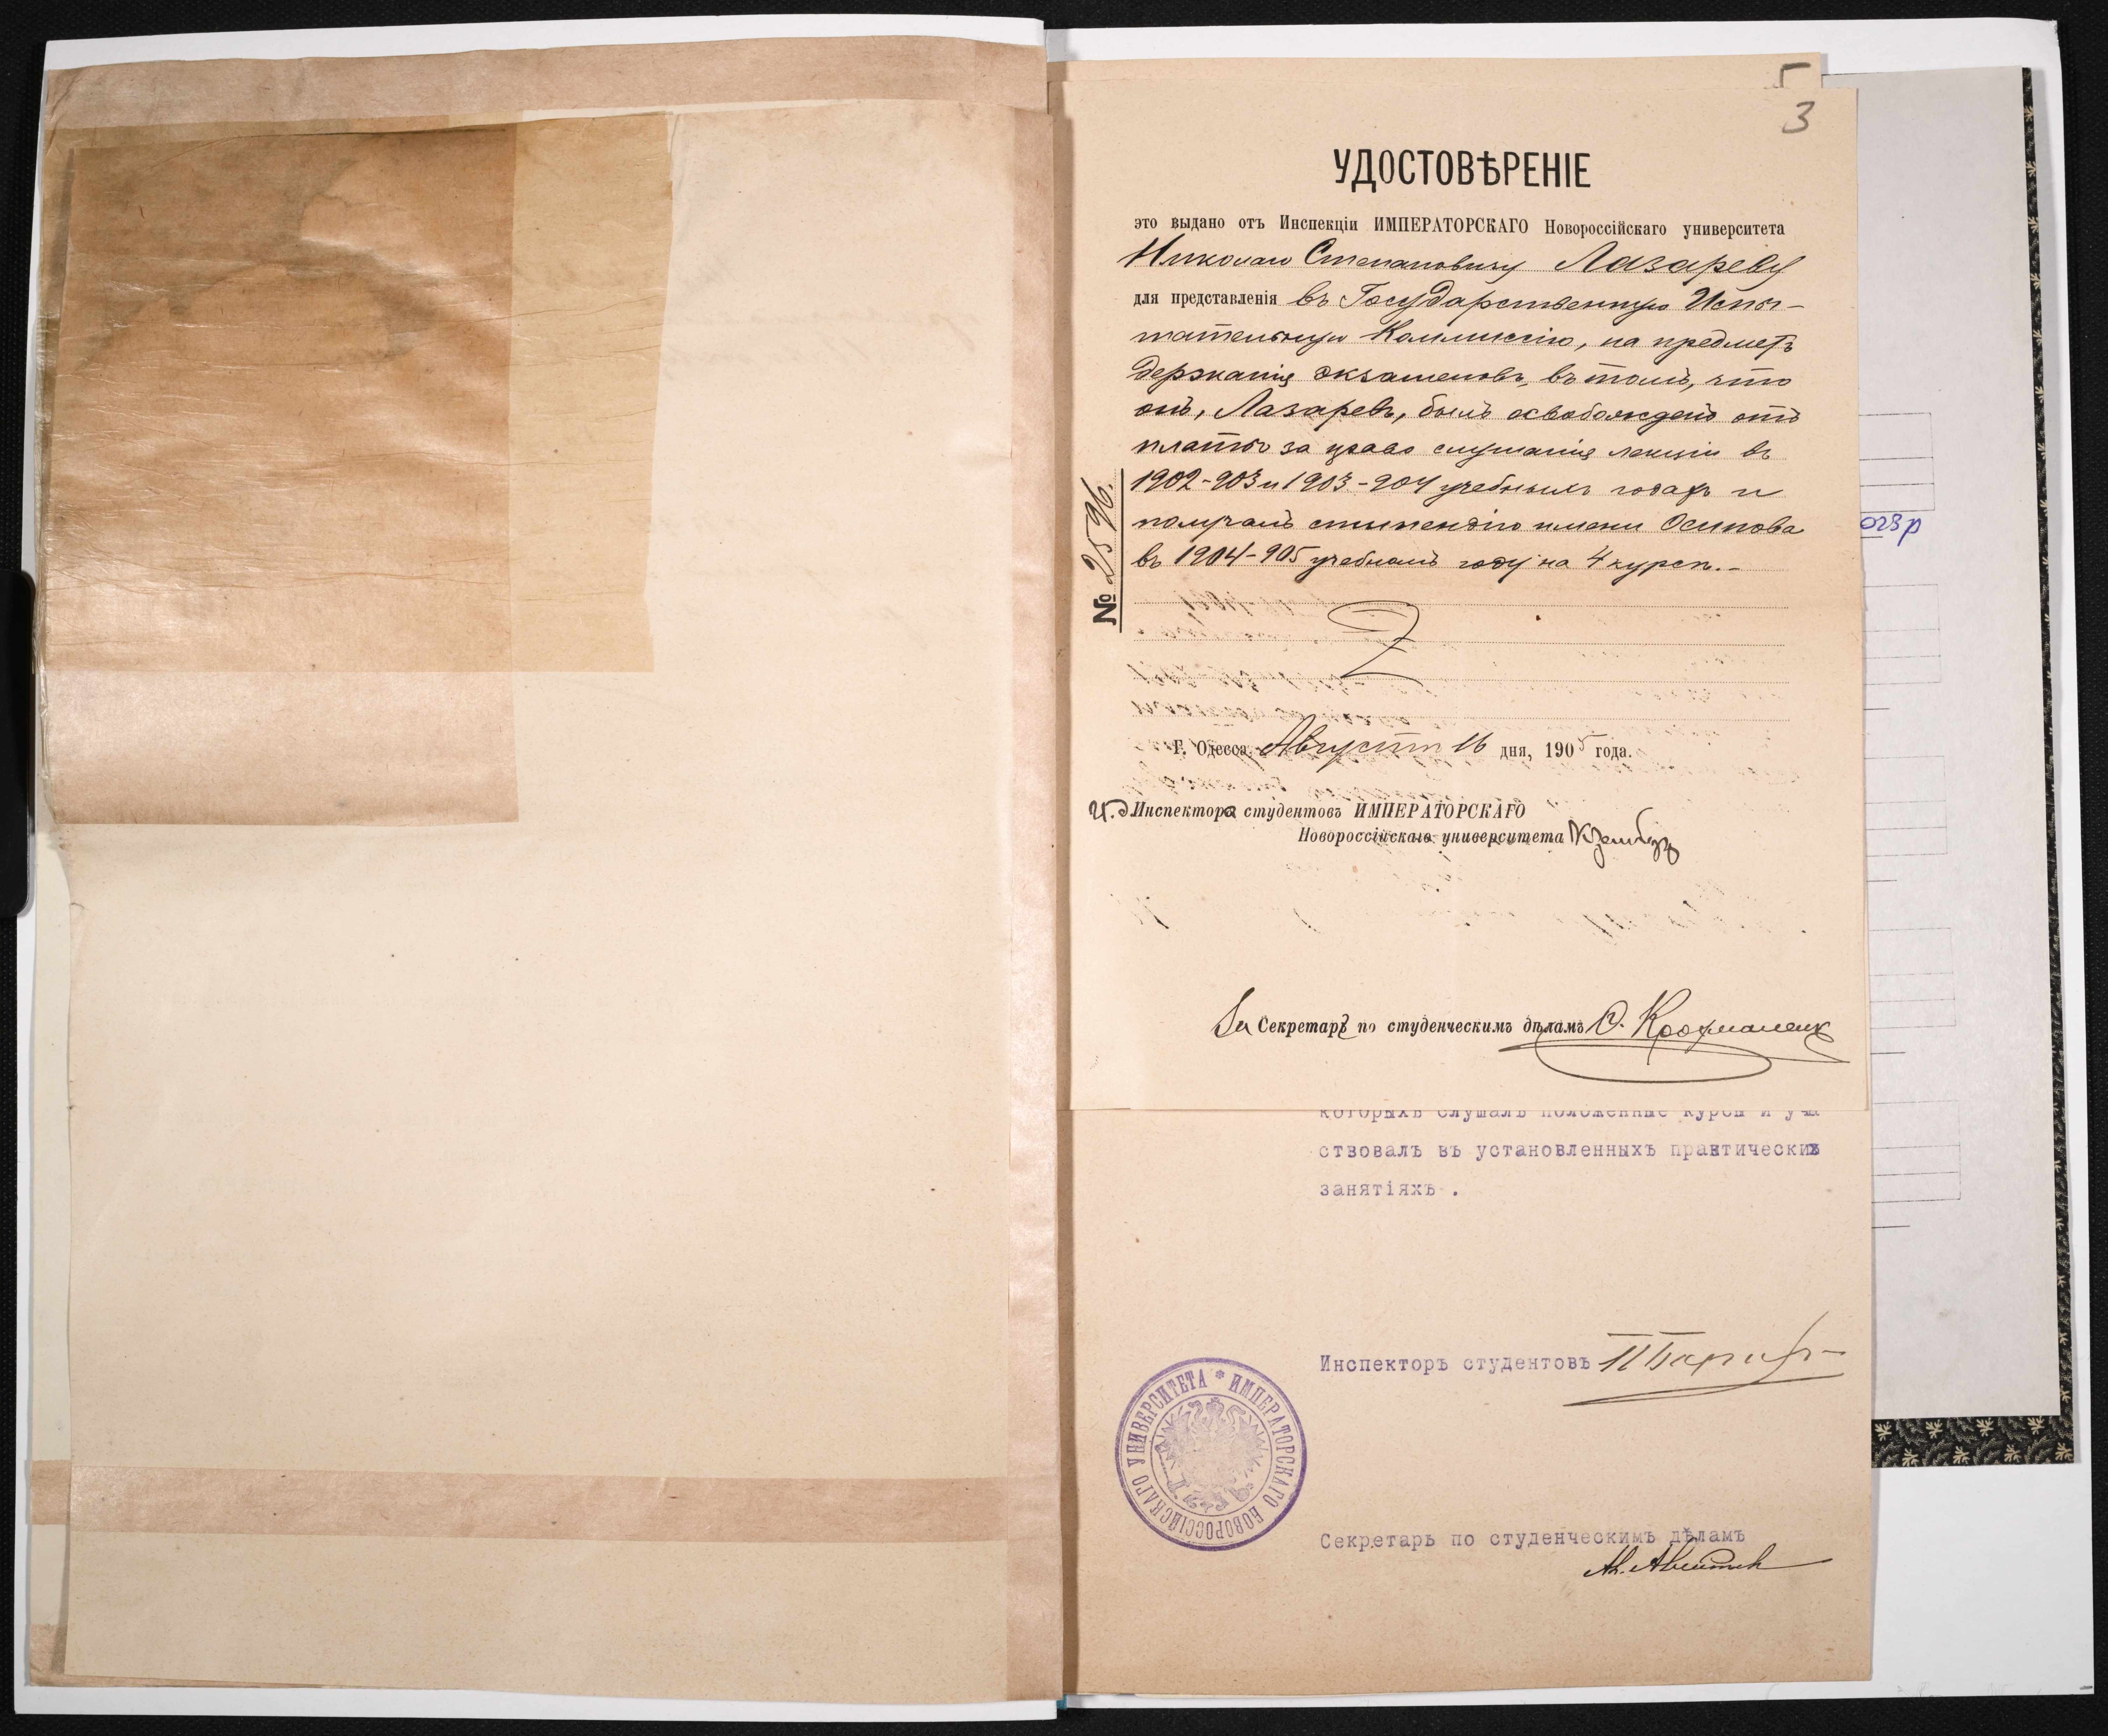 5
3
УДОСТОВѢРЕНІЕ
это выдано отъ Инспекціи ИМПЕРАТОРСКАГО Новороссійскаго университета
Николаю Степановичу Лазареву
для представленія въ Государственную Испы-
тательную Коммиссію, на предметъ
держанія экзаменовъ, въ томъ, что
онъ, Лазаревъ, былъ освобожденъ отъ
платы за право слушанія лекцій въ
1902-903 и 1903-904 учебныхъ годахъ и
получалъ стипендію имени Осипова
въ 1904-905 учебномъ году на 4 курсѣ.-
№ 2596.
Г. Одесса. Августа 16 дня, 1905 года.
И. д. Инспектора студентовъ ИМПЕРАТОРСКАГО
Новороссійскаго университета
За Секретаря по студенческимъ дѣламъ
которыхъ слушалъ положенные курсы и уча
ствовалъ въ установленныхъ практических
занятіяхъ .
Инспекторъ студентовъ
ИМПЕРАТОРСКАГО НОВОРОССІЙСКАГО УНИВЕРСИТЕТА *
Секретарь по студенческимъ дѣламъ